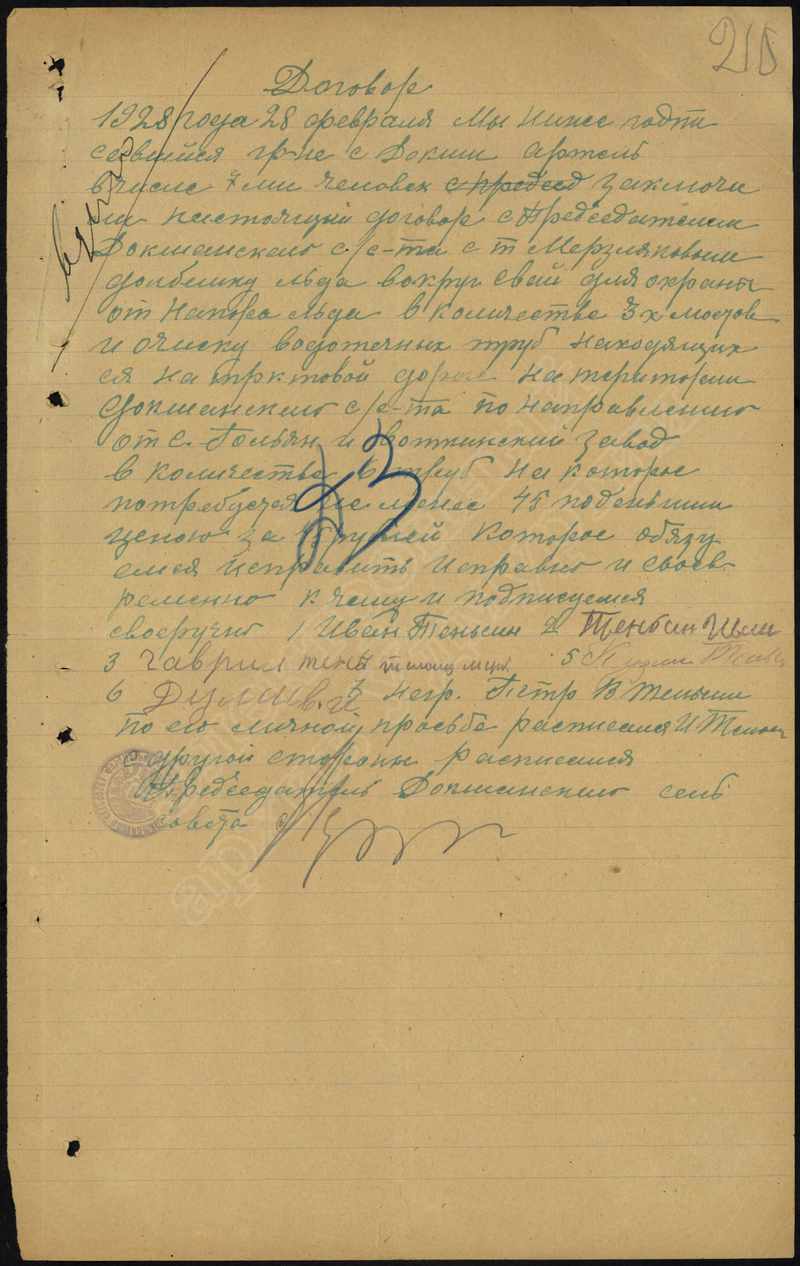 218
Договор
1928 года 28 февраля Мы ниже подпи
савшийся гр-не с Докши артель
в числе 7 ми человек с председ заключи
ли настоящий договор с Председателем
Докшанского с/с-та с т Мерзляковым
долбешку льда вокруг свай для охраны
от напора льда в количестве 3х мостов
и очиску водотечных труб находящих
ся на трктовой дороге на територии
Докшанского с/с-та по направлению
от с. Гольян и Воткинский завод
в количестве 6 труб на которое
потребуется не менее 45 поденьшин
ценою за рублей которое обязу
емся исправить исправно и своев
ременно к чему и подписуемся
своеручно 1 Иван Теньсин 2
3 Гаврил 5
6 7 негр. Петр В Теньсин
по его личной просьбе расписался И
с другой стороны расписался
Председатель Докшанского сель
совета